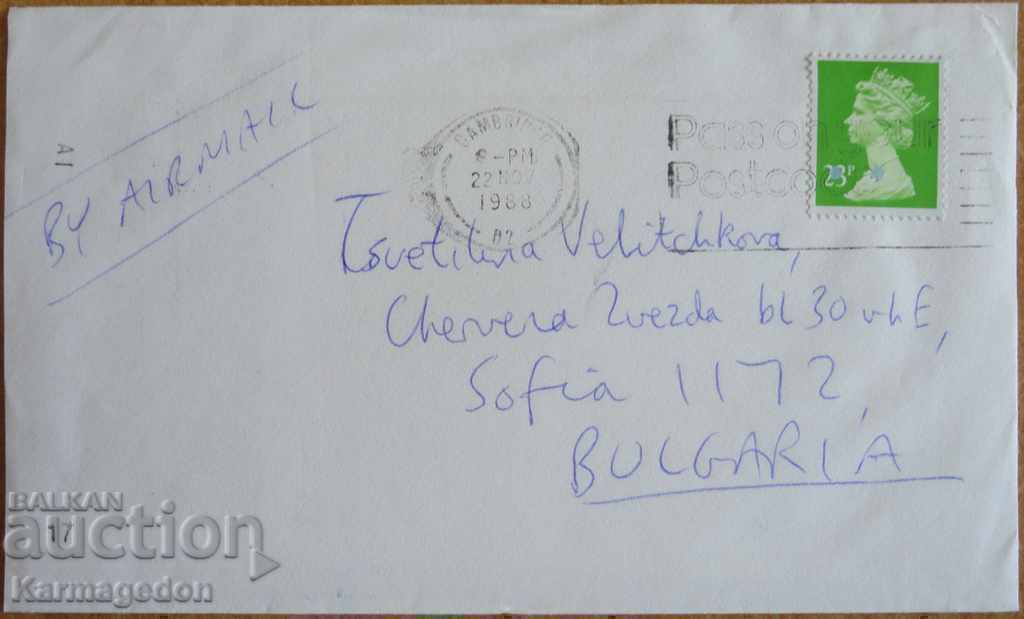 BY AIRMAIL
A1
CAMBRIDGE
8-PM
22 NOV
1988
Pass on your
Postcode
23P
Tsvetilina Velitchkova,
Chervena Zvezda bl 30 vh E,
Sofia 1172,
BULGARIA
BALKAN
auction
17
Karmagedon